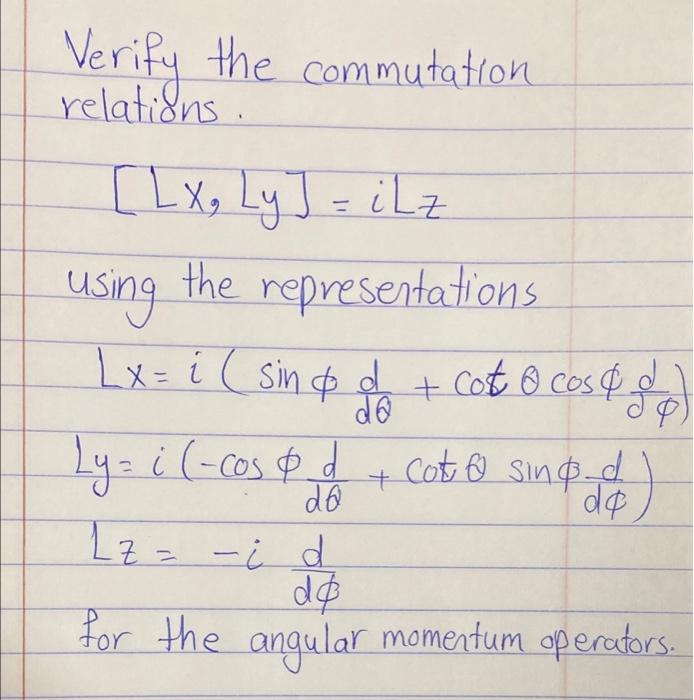 Verify the commutation
relations.
[Lx, Ly] = iLz
using the representations
Lx = i ( sin φ d/dθ + cot θ cos φ d/dφ)
Ly = i (-cos φ d/dθ + cot θ sin φ d/dφ)
Lz = -i d/dφ
for the angular momentum operators.